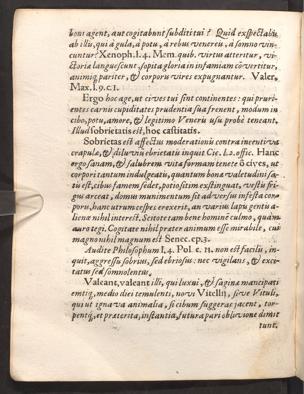 boni agent, aut cogitabunt subditi tui? Quid exspectabis
ab illu, qui à gula, à potu, à rebus venereu, à somno vin-
cuntur? Xenoph. l. 4. Mem. quib. virtus atteritur, vi-
ctoria languescunt, sopita gloria in infamiam cōvertitur,
animiq; pariter, & corporu vires expugnantur. Valer.
Max. l. 9. c. 1.
Ergo hoc age, ut cives tui sint continentes: qui pruri-
entes carnis cupiditates prudentia sua frenent, modum in
cibo, potu, amore, & legitimo Veneris usu probè teneant.
Illud sobrietatis est, hoc castitatis.
Sobrietas est affectus moderationis contra inventiva
crapulæ, & diluviu ebrietatis inquit Cic. l. 2. offic. Hanc
ergo sanam, & salubrem vitæ formam tenete ô cives, ut
corpori tantum indulgeatis, quantum bona valetudini sa-
tis est, cibus famem sedet, potio sitim extinguat, vestis fri-
gus arceat, domus munimentum sit adversus infesta cor-
poris, hanc utrum cespes erexerit, an varius lapis gentis a-
lienæ nihil interest. Scitote tam bene hominē culmo, quàm
auro tegi. Cogitate nihil præter animum esse mirabile, cui
magno nihil magnum est Senec. ep. 3.
Audite Philosophum l. 4. Pol. c. 11. non est facilis, in-
quit, aggressu sobrius, sed ebrios: nec vigilans, & exci-
tatus sed somnolentus.
Valeant, valeant illi, qui luxui, & sagina mancipati
emtiq; medio diei temulenti, novi Vitellij, sive Vituli,
qui ut ignava animalia, si cibum suggeras jacent, tor-
pentq;, et præterita, instantia, futura pari oblivione dimit
tunt.